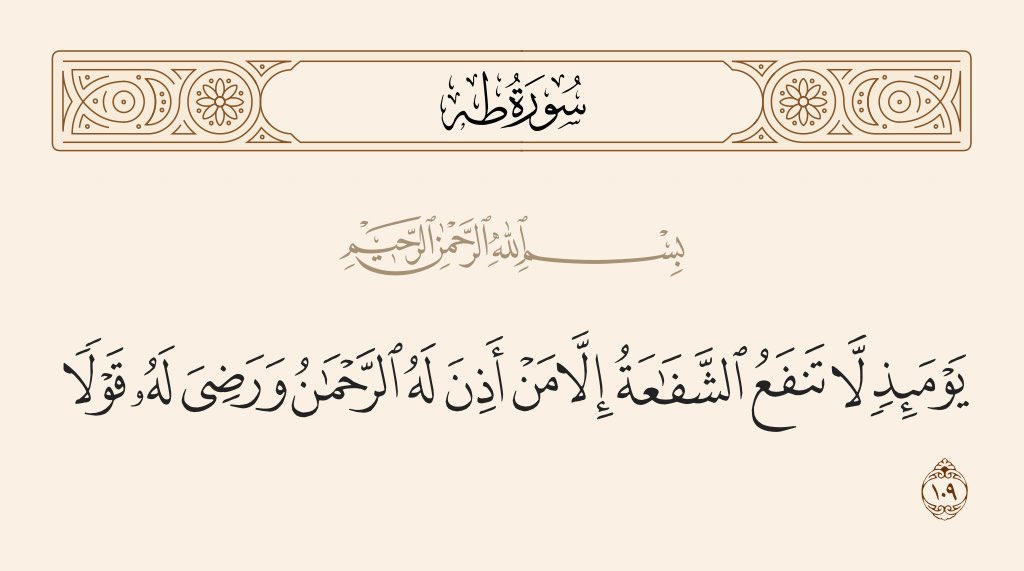 سُورَةُ طه
بِسْمِ ٱللَّهِ ٱلرَّحْمَٰنِ ٱلرَّحِيمِ
يَوْمَئِذٍ لَّا تَنفَعُ ٱلشَّفَٰعَةُ إِلَّا مَنْ أَذِنَ لَهُ ٱلرَّحْمَٰنُ وَرَضِىَ لَهُۥ قَوْلًا
١٠٩